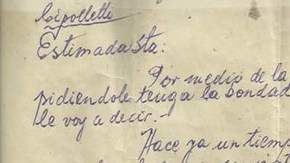 Cipolletti
Estimada Sta:
Por medio de la
pidiendole tenga la bondad
le voy a decir.-
Hace ya un tiemp